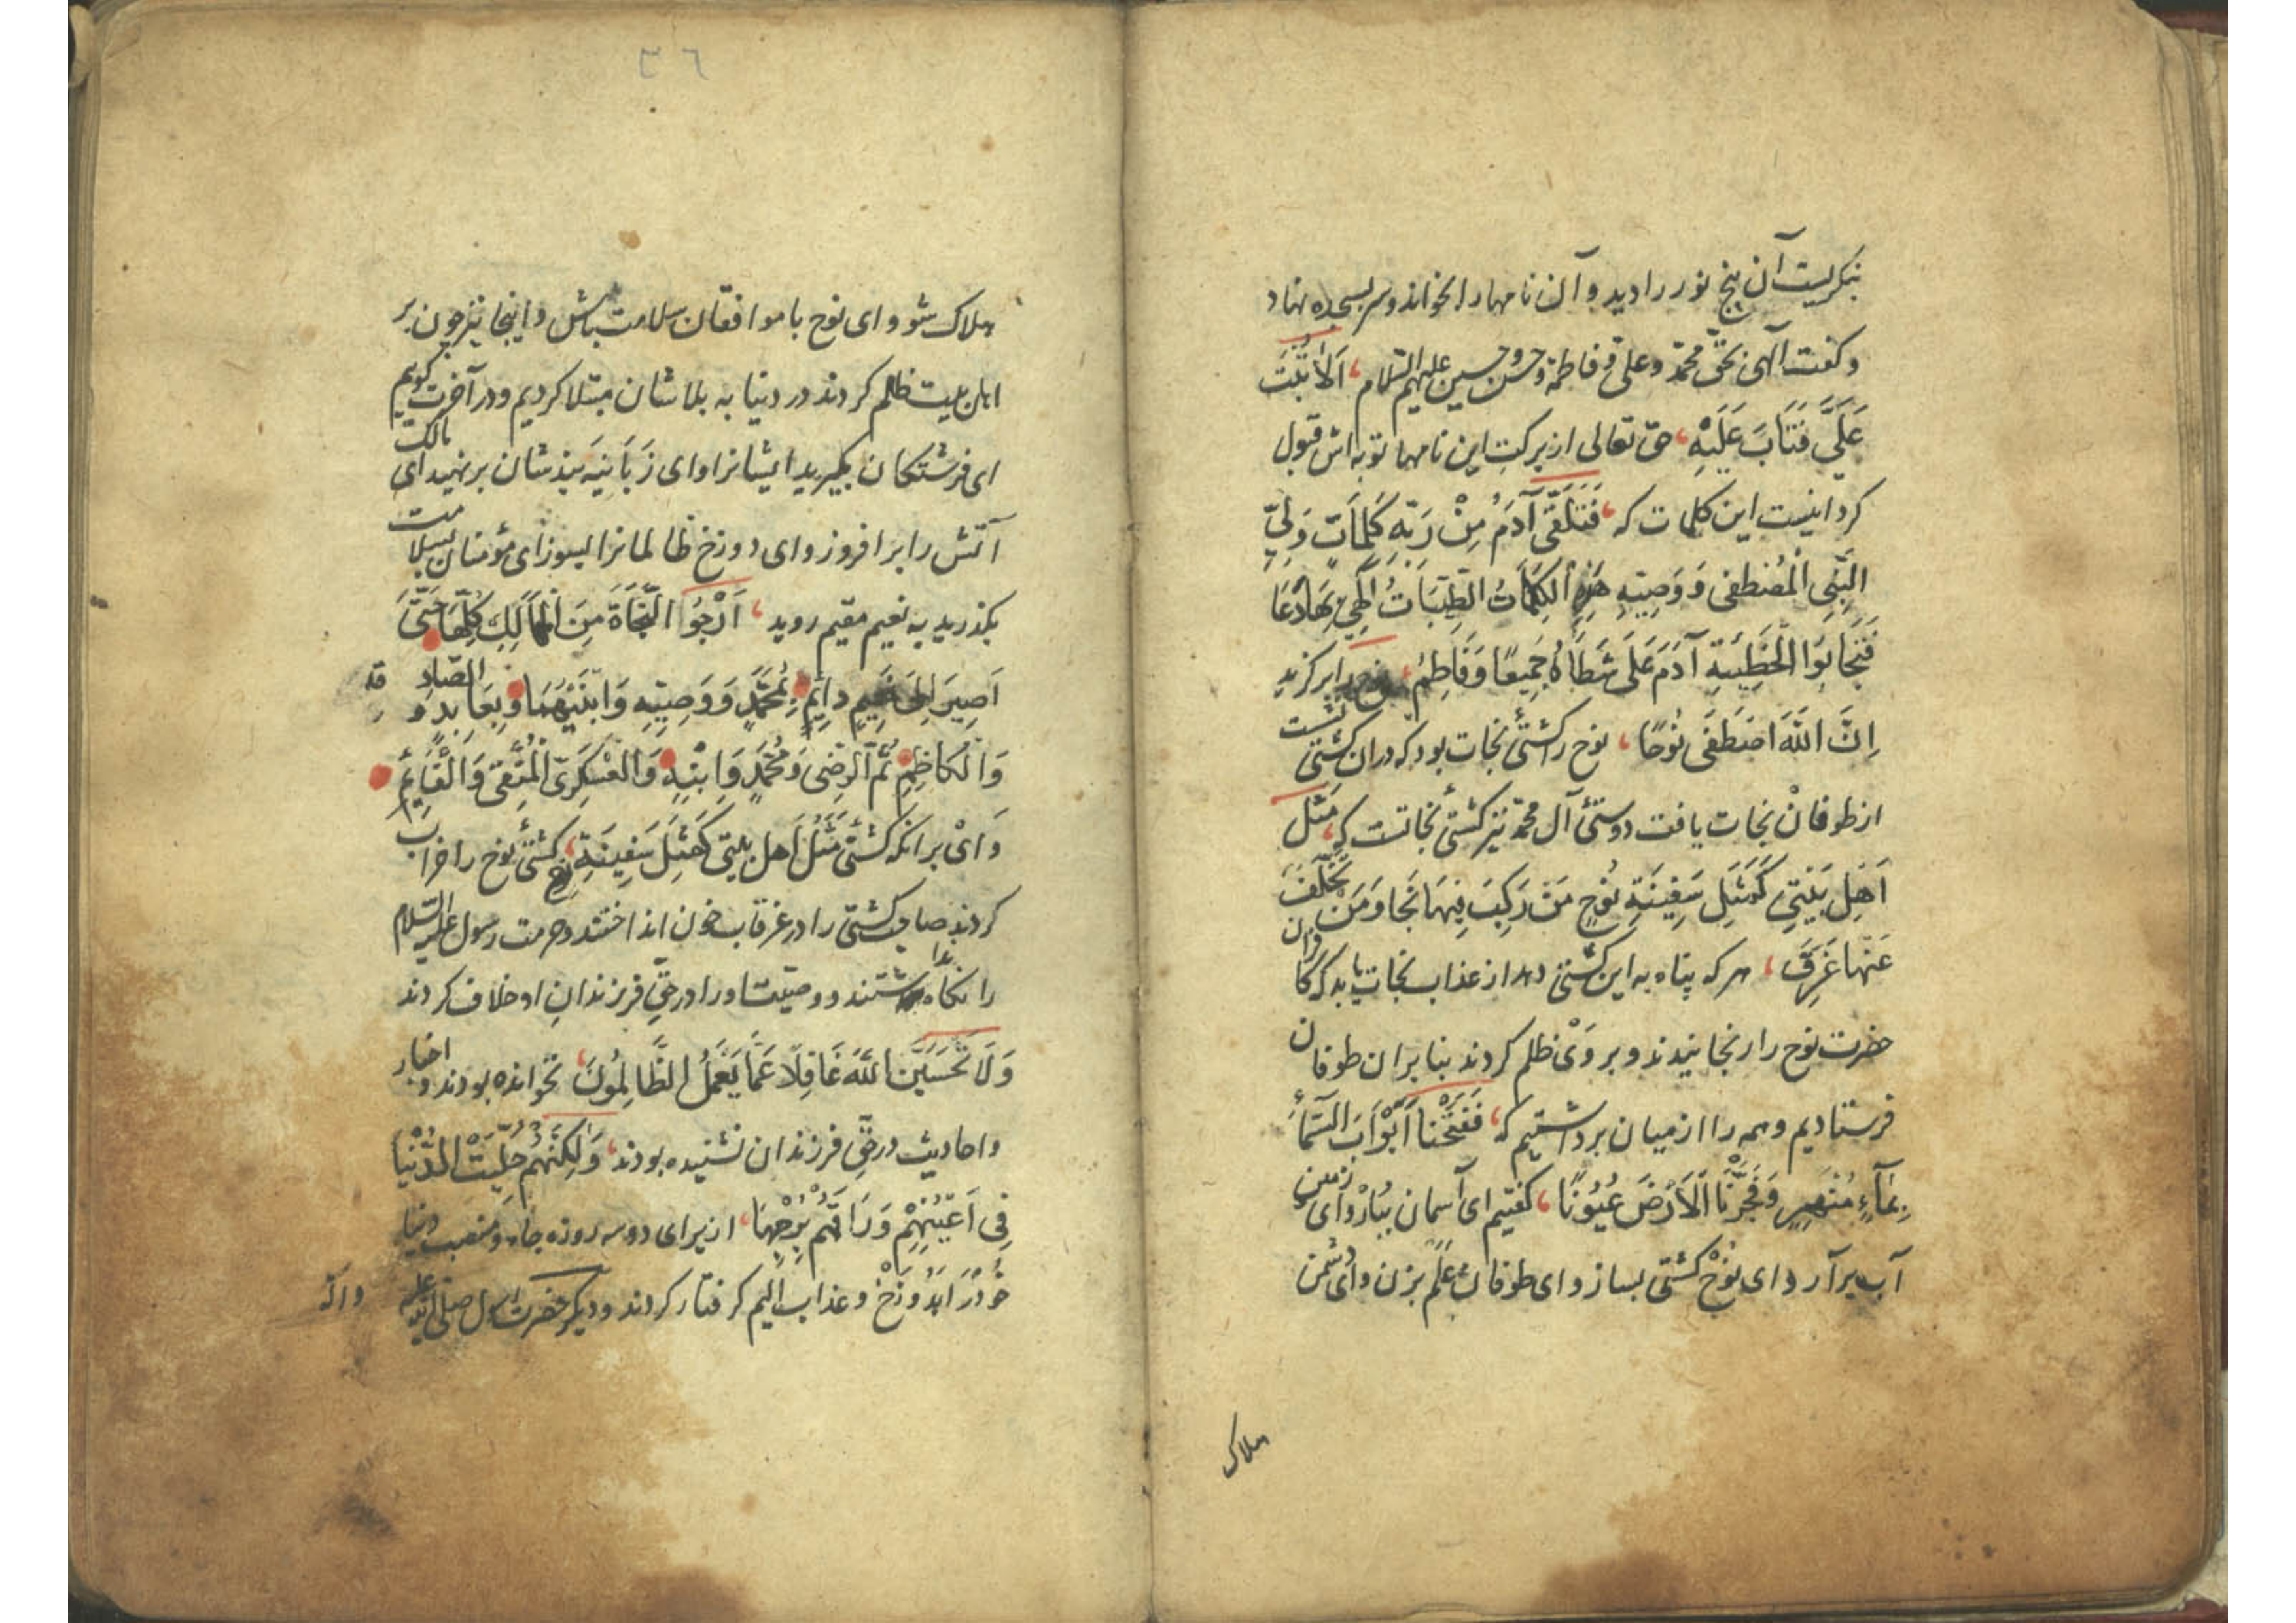 بنکریست آن پنج نور را دید و آن نامها را بخواند و سر بسجده نهاد
و کفت آلهی بحقّ محمّد و علی و فاطمة و حسن و حسین علیهم السّلام اَلاٰ تُبْتَ
عَلَیَّ فَتَابَ عَلَیْهِ حق تعالی از برکت این نامها توبه اش قبول
کرد اینست این کلمات که فَتَلَقَّی آدَمُ مِنْ رَبِّهِ کَلِمَاتٍ وَلِیِّ
النَّبِی الْمُصْطَفی وَ وَصِیِّهِ هَذِهِ الْکَلِمَاتُ الطَّیِّبَاتُ الَّتِی بِهَا دَعَا
الْخَطِیئَةِ آدَمَ عَلَی خَطَأَهُ جَمِیعًا وَ فَاطِمُ نوح را برکزید
اِنَّ اللّٰهَ اصْطَفَی نُوحًا نوح را کشتئ نجات بود که در ان کشتی نشست
از طوفان نجات یافت دوستئ آل محمّد نیز کشتئ نجاتست که مَثَل
اَهْلِ بَیْتِی کَمَثَلِ سَفِینَةِ نُوحٍ مَنْ رَکِبَ فِیهَا نَجَا وَ مَنْ تَخَلَّفَ
عَنْهَا غَرِقَ هر که پناه به این کشتی دهد از عذاب نجات یابد که کافران
حضرت نوح را رنجانیدند و بر وَیْ ظلم کردند بنا بر ان طوفان
فرستادیم و همه را از میان برداشتیم که فَفَتَحْنَا اَبْوَابَ السَّمَآءِ
بِمَآءٍ مُنْهَمِرٍ وَ فَجَّرْنَا الْاَرْضَ عُیُونًا کفتیم ای آسمان بُبارْ و ای زمین
آب برآر و ای نُوحْ کشتی بساز و ای طوفان عَلَم بزن و ای دُشمن
هلاک
٣٦
هلاک شو و ای نوح با موافقان سلامت باش و اینجا نیز چون بر
اهل بیت ظلم کردند در دنیا به بلاشان مبتلا کردیم و در آخرت کوییم
ای فرشتکان بکیرید ایشانرا و ای زَبَانِیَه بندشان برنهید ای مالک
آتش را برافروز و ای دوزخ ظالمانرا بسوز ای مؤمنان بسلامت
بکذرید به نعیم مقیم روید اَرْجُوا النَّجَاةَ مِنَ الْمَهَالِكِ کُلِّهَا حَتَّی
اَصِیرَ اِلَی نَعِیمٍ دایِمٍ بِمُحَمَّدٍ وَ وَصِیِّهِ وَ ابْنَیْهِمَا وَ بِعَابِدٍ وَ الصّادِ قِ
وَ الْکَاظِمِ ثُمَّ الرِّضَی وَ مُحَمَّدٍ وَ ابْنِهِ وَ الْعَسْکَرِیّ الْمُتَّقِی وَ الْقَایِمِ
وَ ایْ بر انکه کشتی مَثَلُ اَهل بیتی کَمَثَلِ سَفِینَةِ نوح کشتئ نوح را خراب
کردند صاحب کشتی را در غرقاب خون انداختند و حرمت رسول علیه السّلام
را نکاه نداشتند و وصیّت او را در حقّ فرزندانِ او خلاف کردند
وَ لَا تَحْسَبَنَّ اللّٰهَ غَافِلًا عَمَّا یَعْمَلُ الظَّالِمُونَ نخوانده بودند و اخبار
و احادیث در حقّ فرزندان نشنیده بودند وَ لٰکِنَّهُمْ حُلِّیَتْ الدُّنْیَا
فِی اَعْیُنِهِمْ وَ رَاقَهُمْ زِبْرِجُهَا از برای دو سه روزه جاه و منصب دنیا
خُود را بَدُوزَخْ و عذاب الیم کرفتار کردند و دیکر حضرت رسول صلّی اللّه علیه
و اله